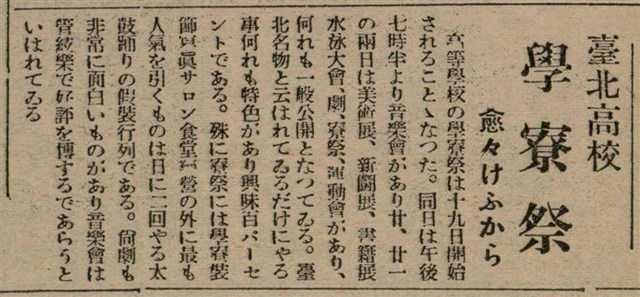 臺北高校
學寮祭
愈々けふから
高等學校の學寮祭は十九日開始
されることゝなつた。同日は午後
七時半より音樂會があり廿、廿一
の兩日は美術展、新聞展、書籍展
水泳大會、劇、寮祭、運動會があり、
何れも一般公開となつてゐる。臺
北名物と云はれてゐるだけにやる
事何れも特色があり興味百パーセ
ントである。殊に寮祭には學寮裝
飾寫眞サロン食堂經營の外に最も
人氣を引くものは日に二回やる太
鼓踊りの假裝行列である。尙劇も
非常に面白いものがあり音樂會は
管絃樂で好評を博するであらうと
いはれてゐる